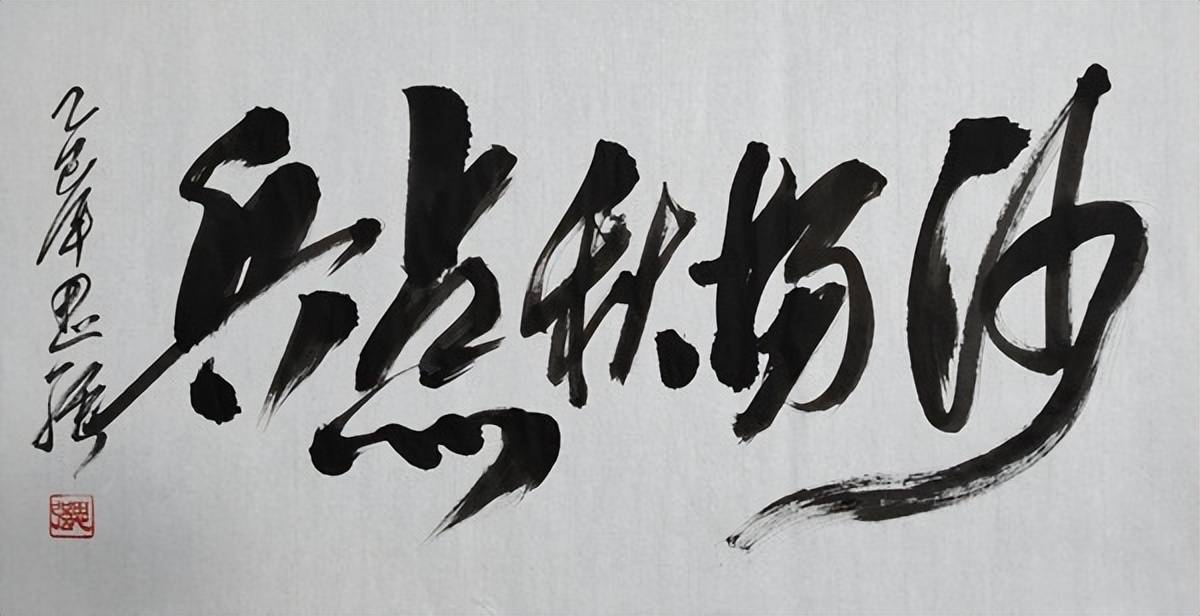 沙场秋点兵
乙巳年思强